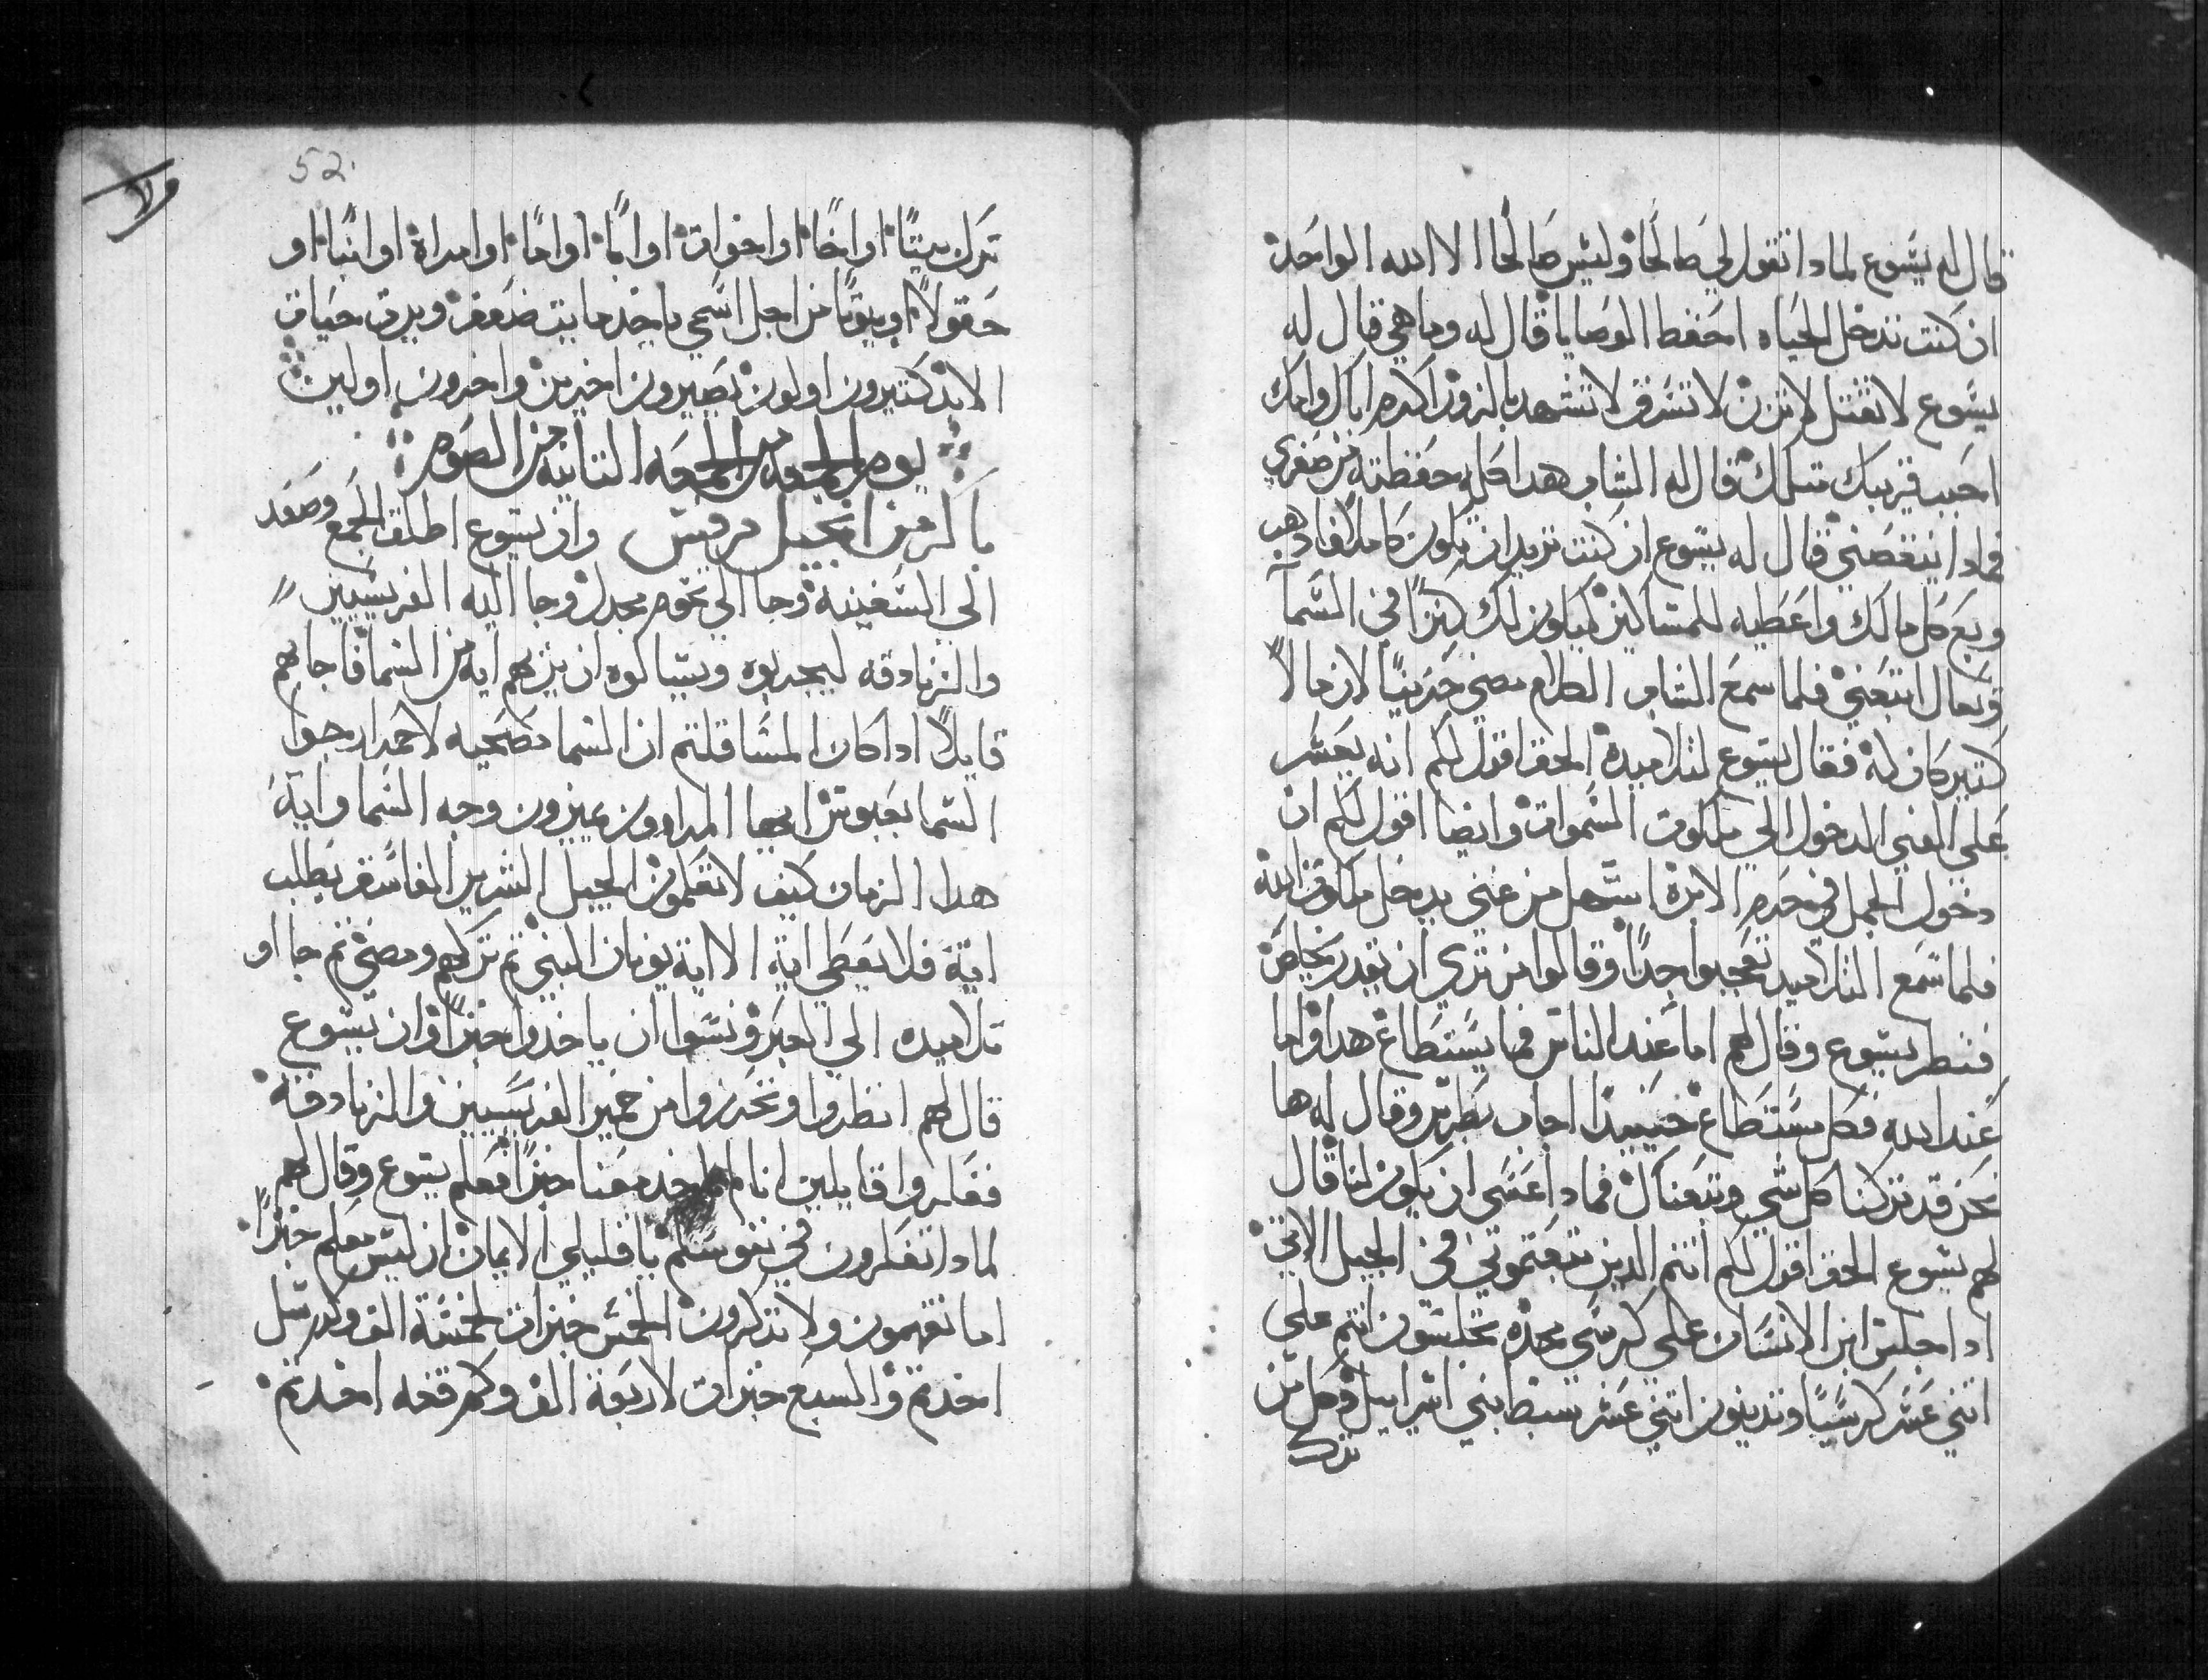 قال له يسوع لمادا تقول لي صالحا وليس صالحا الا الله الواحد
ان كنت تدخل الحياه احفظ الوصايا قال له وما هي قال له
يسوع لا تقتل لا تزن لا تسرق لا تشهد بالزور اكرم اباك وامك
احبب قريبك متلك قال له الشاب هدا كله حفظته من صغري
فمادا ينقصني قال له يسوع ان كنت تريد ان تكون كاملا فادهب
وبع كل مالك واعطيه للمساكين ليكون لك كنزا في السمآ
وتعال اتبعني فلما سمع الشاب الكلام مضي حزينا لان مالا
كتير كان له فقال يسوع لتلاميده الحق اقول لكم انه يعسر
علي الغني الدخول الي ملكوت السموات وايضا اقول لكم ان
دخول الجمل في خرم الابرة اسهل من غني يدخل ملكوت الله
فلما سمع التلاميد تعجبوا جدا وقالوا من تري ان يقدر يخلص
فنظر يسوع وقال لهم اما عند الناس فما يستطاع هدا واما
عند الله فكل يستطاع حينيدا اجاب بطرس وقال له ها
نحن قد تركنا كل شي وتبعناك فمادا عسي ان يكون لنا قال
لهم يسوع الحق اقول لكم انتم الدين تبعتموني في الجيل الاتي
ادا جلس ابن الانسان علي كرسي مجده تجلسون انتم علي
اتني عشر كرسيا وتدينون اتني عشر سبط بني اسراييل وكل من
ترك
52
ترك بيتا او اخا او اخوات او ابا او اما او امراة او ابنا او
حقولا او بيوتا من اجل اسمي ياخد مايت ضعف ويرت حيات
الابد كتيرون اولون يصيرون اخيرين واخرون اولين
يوم الجمعه من الجمعه التانيه من الصوم
باكر من انجيل مرقس وان يسوع اطلق الجمع وصعد
الي السفينة وجا الي تخوم مجدل وجا اليه الفريسيين
والزنادقه ليجربوه ويسالوه ان يريهم ايه من السما فاجابهم
قايلا ادا كان المسا قلتم ان السما مصحيه لاحمرار جوا
السما بعبوس ايها المراوون تميزون وجه السما واية
هدا الزمان كيف لا تعلمون الجيل الشرير الفاسق يطلب
اية فلا يعطي اية الا اية يونان النبي تم تركهم ومضي تم جااو
تلاميده الي العبر ونسوا ان ياخدوا خبزا وان يسوع
قال لهم انظروا وتحرروا من خمير الفريسيين والزنادقة
ففكروا قايلين اننا لم ناخد معنا خبزا فعلم يسوع وقال لهم
لمادا تفكرون في نفوسكم يا قليلي الايمان ان ليس معكم خبزا
اما تفهمون ولا تدكرون الخمس خبزات لخمسة الف وكم سل
اخدتم والسبع خبزات لاربعة الف وكم قفه اخدتم